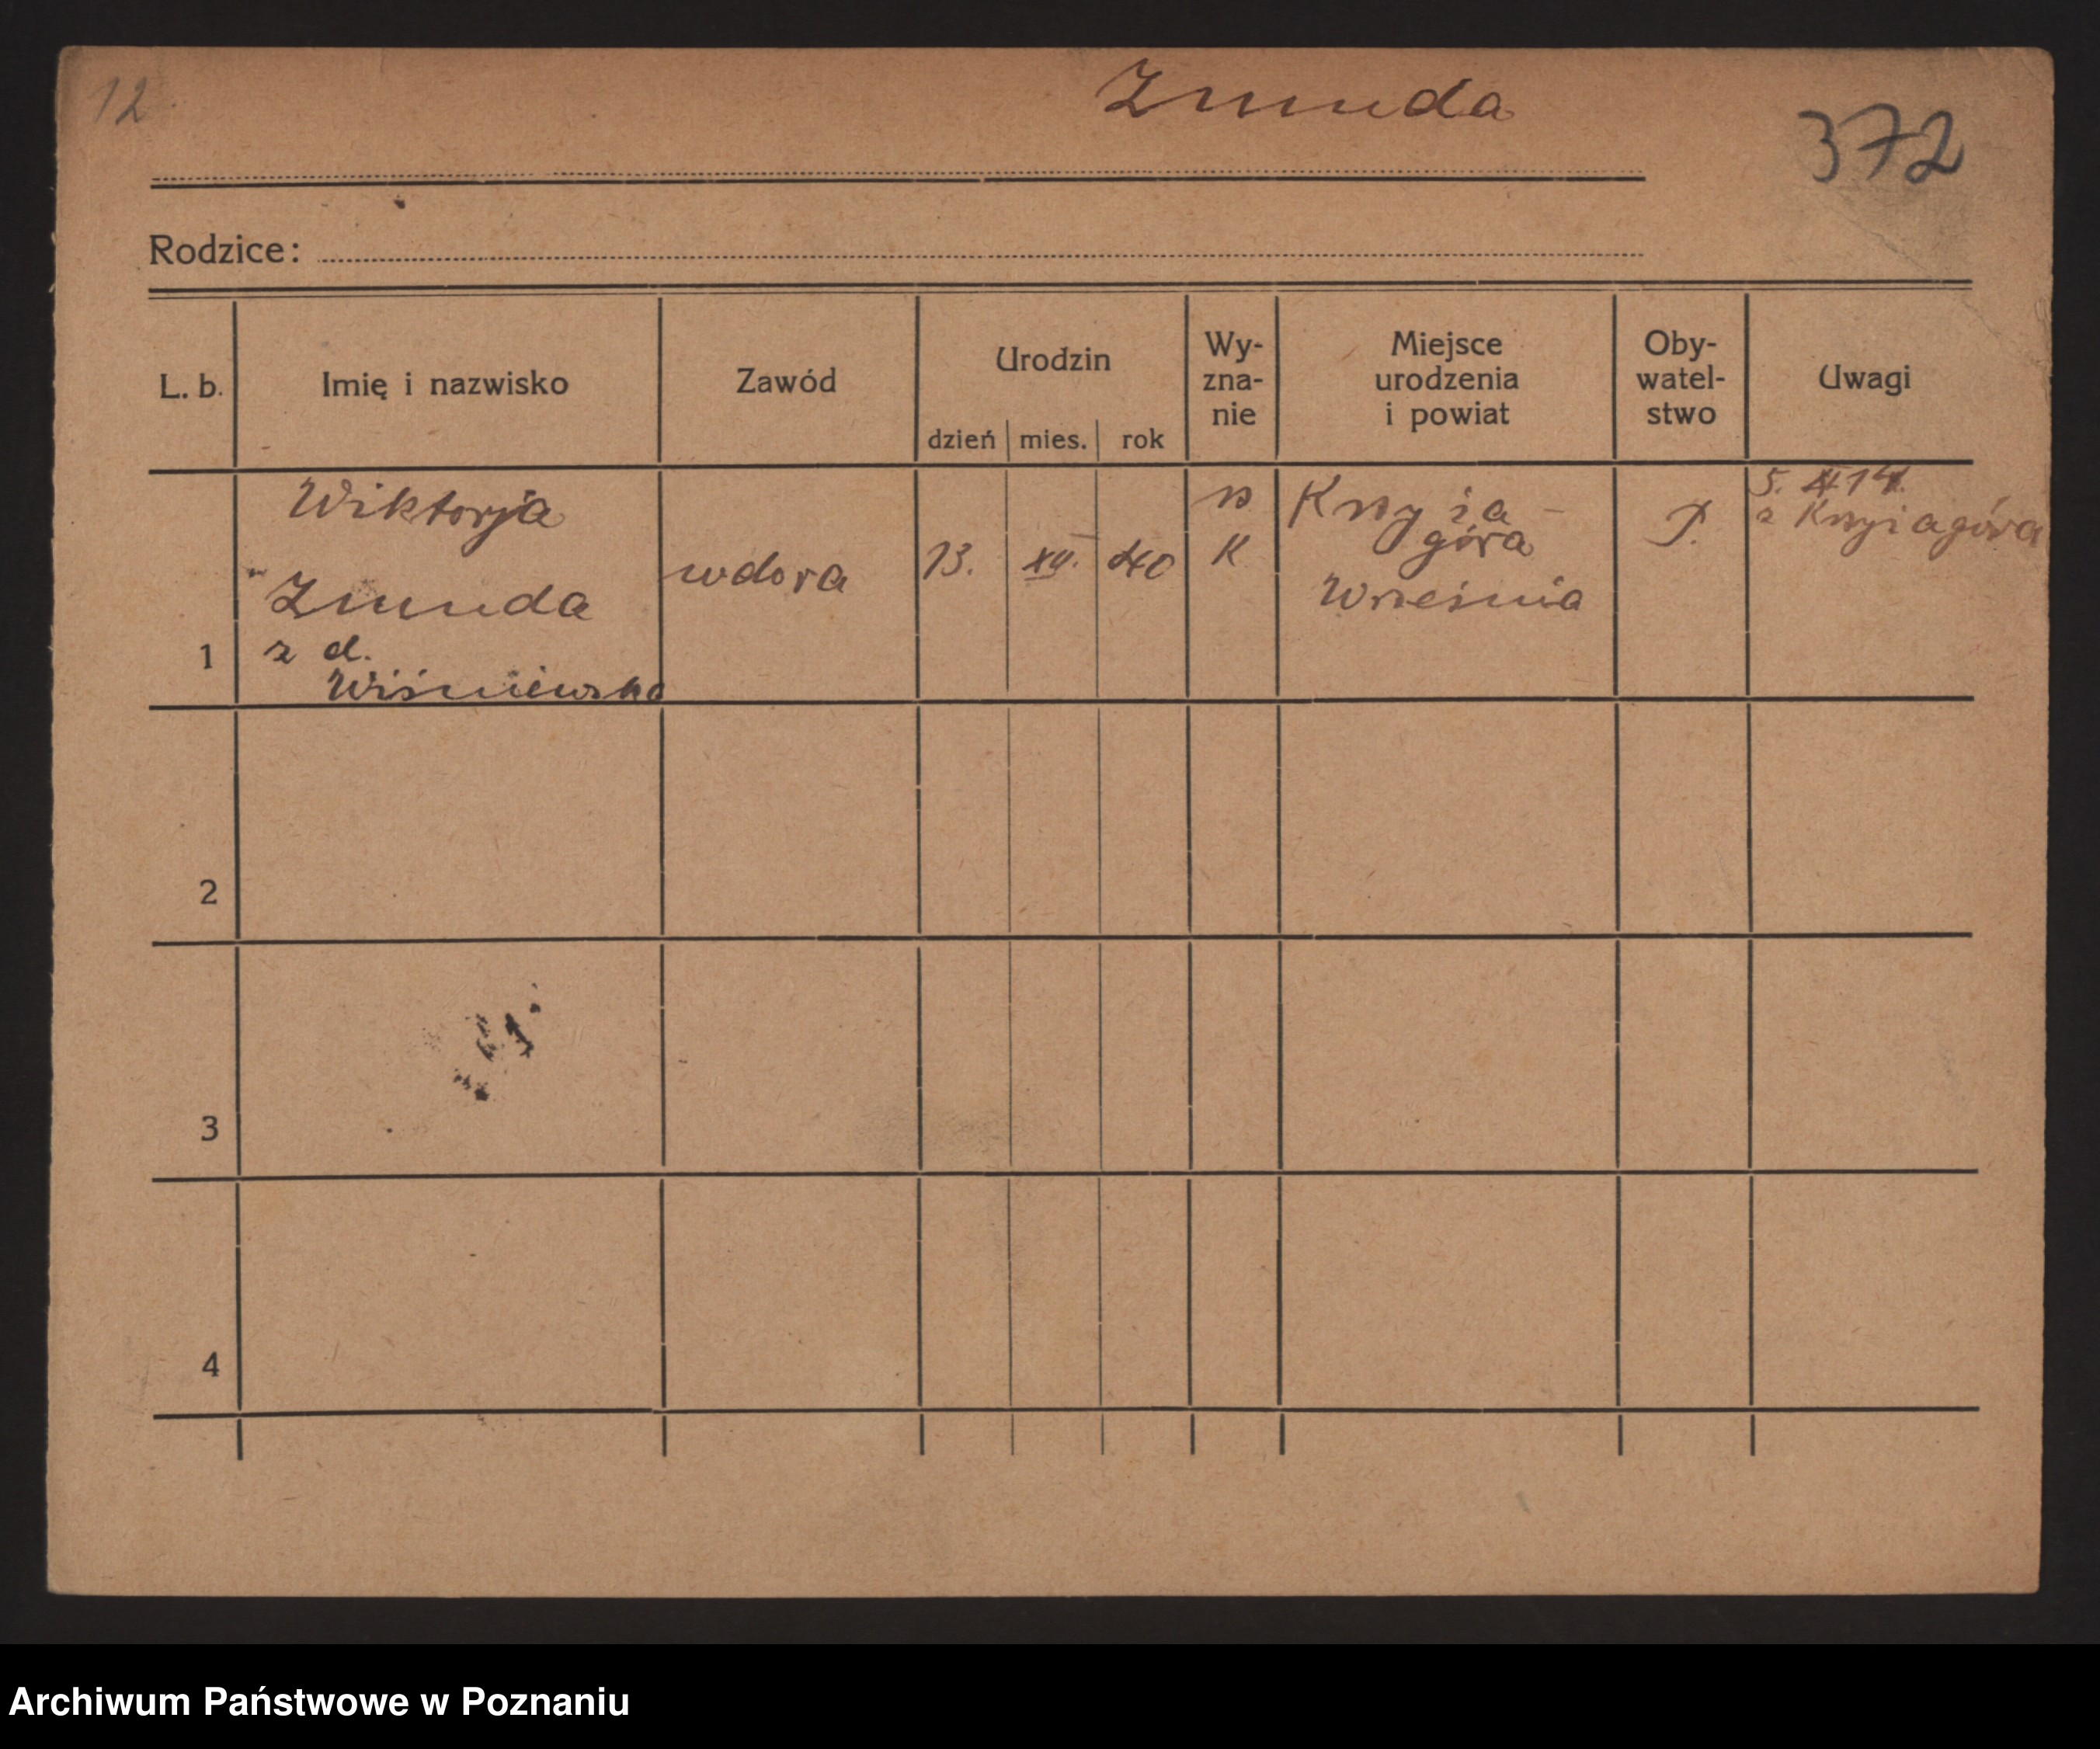 12
Zmuda
372
Rodzice:
L. b.
Imię i nazwisko
Zawód
Urodzin
dzień
mies.
rok
Wy-
zna-
nie
Miejsce
urodzenia
i powiat
Oby-
watel-
stwo
Uwagi
1
Wiktorja
Zmuda
z d.
Wiśniewska
wdova
13.
XII.
40
K
góra
Września
P.
5.
z
2
3
4
Archiwum Państwowe w Poznaniu